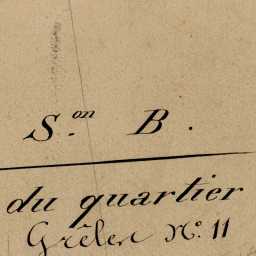 S.on B.
du quartier
Grêlen No. 11